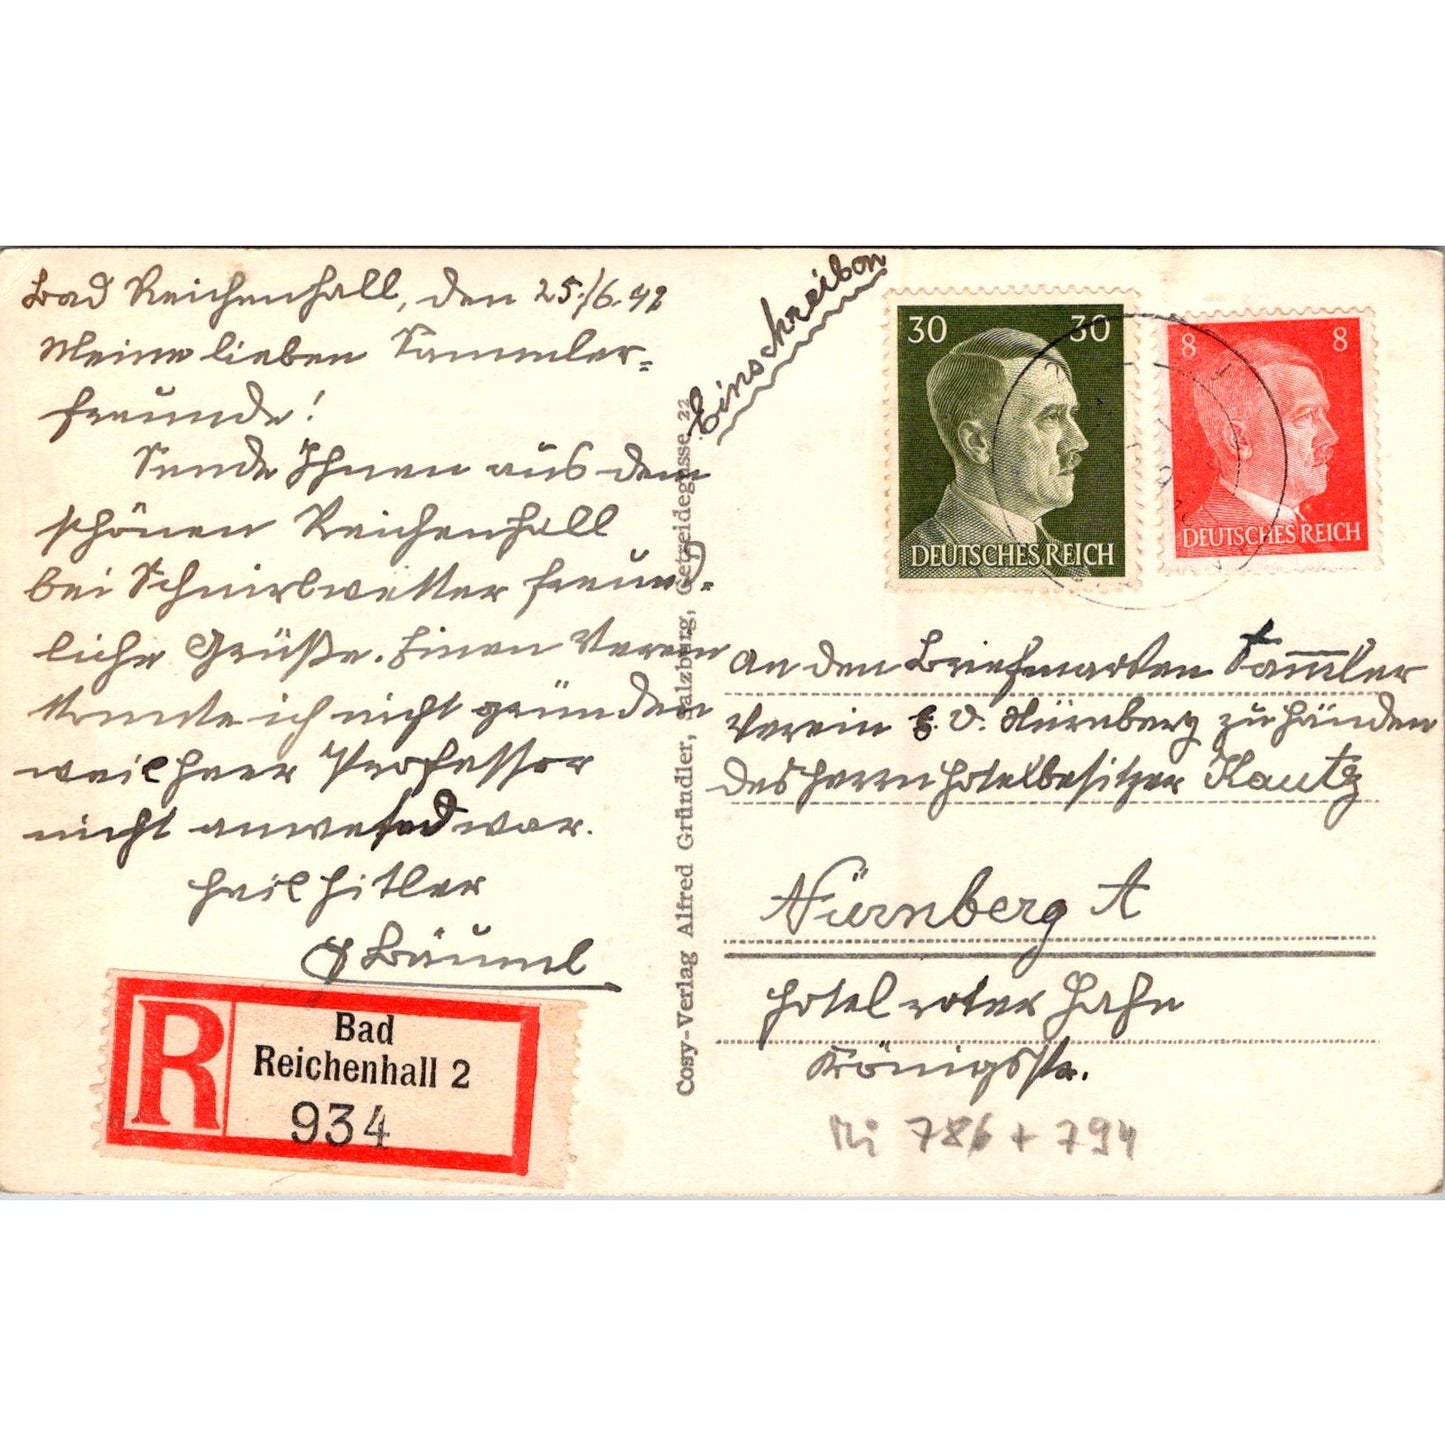 Bad Reichenhall, den 25./6.42
Meine lieben Sammler=
freunde!
Sende Ihnen aus dem
schönen Reichenhall
bei Schnürlwetter freund-
liche Grüße. Einen Verein
konnte ich nicht gründen
weil Herr Professor
nicht anwesed war.
Heil Hitler
Bäuml
R
Bad
Reichenhall 2
934
Cosy-Verlag Alfred Gründler, Salzburg, Getreidegasse 22
Einschreiben
30 30
DEUTSCHES REICH
8 8
DEUTSCHES REICH
An den Briefmarken Sammler
Verein E. V. Nürnberg zu Händen
des Herrn Hotelbesitzer Kautz
Nürnberg A
Hotel roter Hahn
Königstr.
Mi 786 + 794